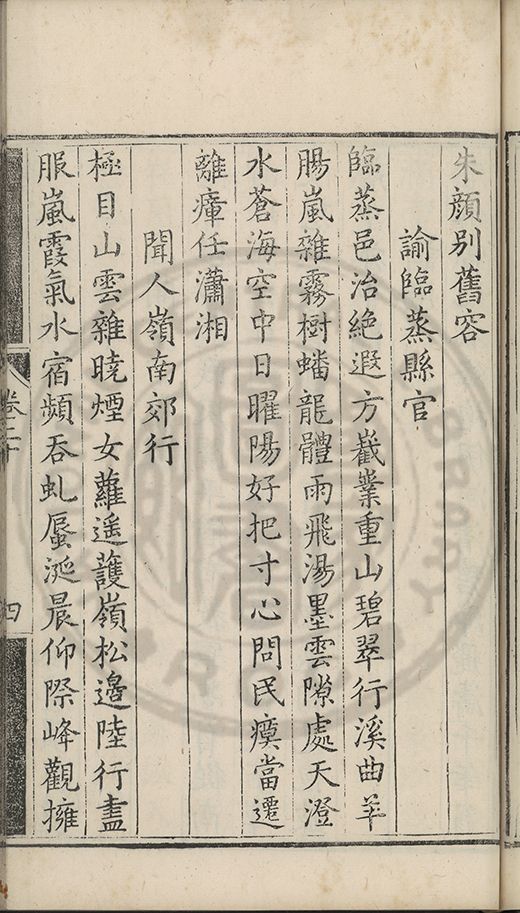 朱顔別舊容
諭臨蒸縣官
臨蒸邑治絶遐方嶻嶪重山碧翠行溪曲羊
腸嵐雜霧樹蟠龍體雨飛湯墨雲隙處天澄
水蒼海空中日曜陽好把寸心問民瘼當遷
離瘴任瀟湘
聞人嶺南郊行
極目山雲雜曉煙女蘿遥護嶺松邉陸行盡
服嵐霞氣水宿頻吞虬蜃涎晨仰際峰觀擁
卷二十
四